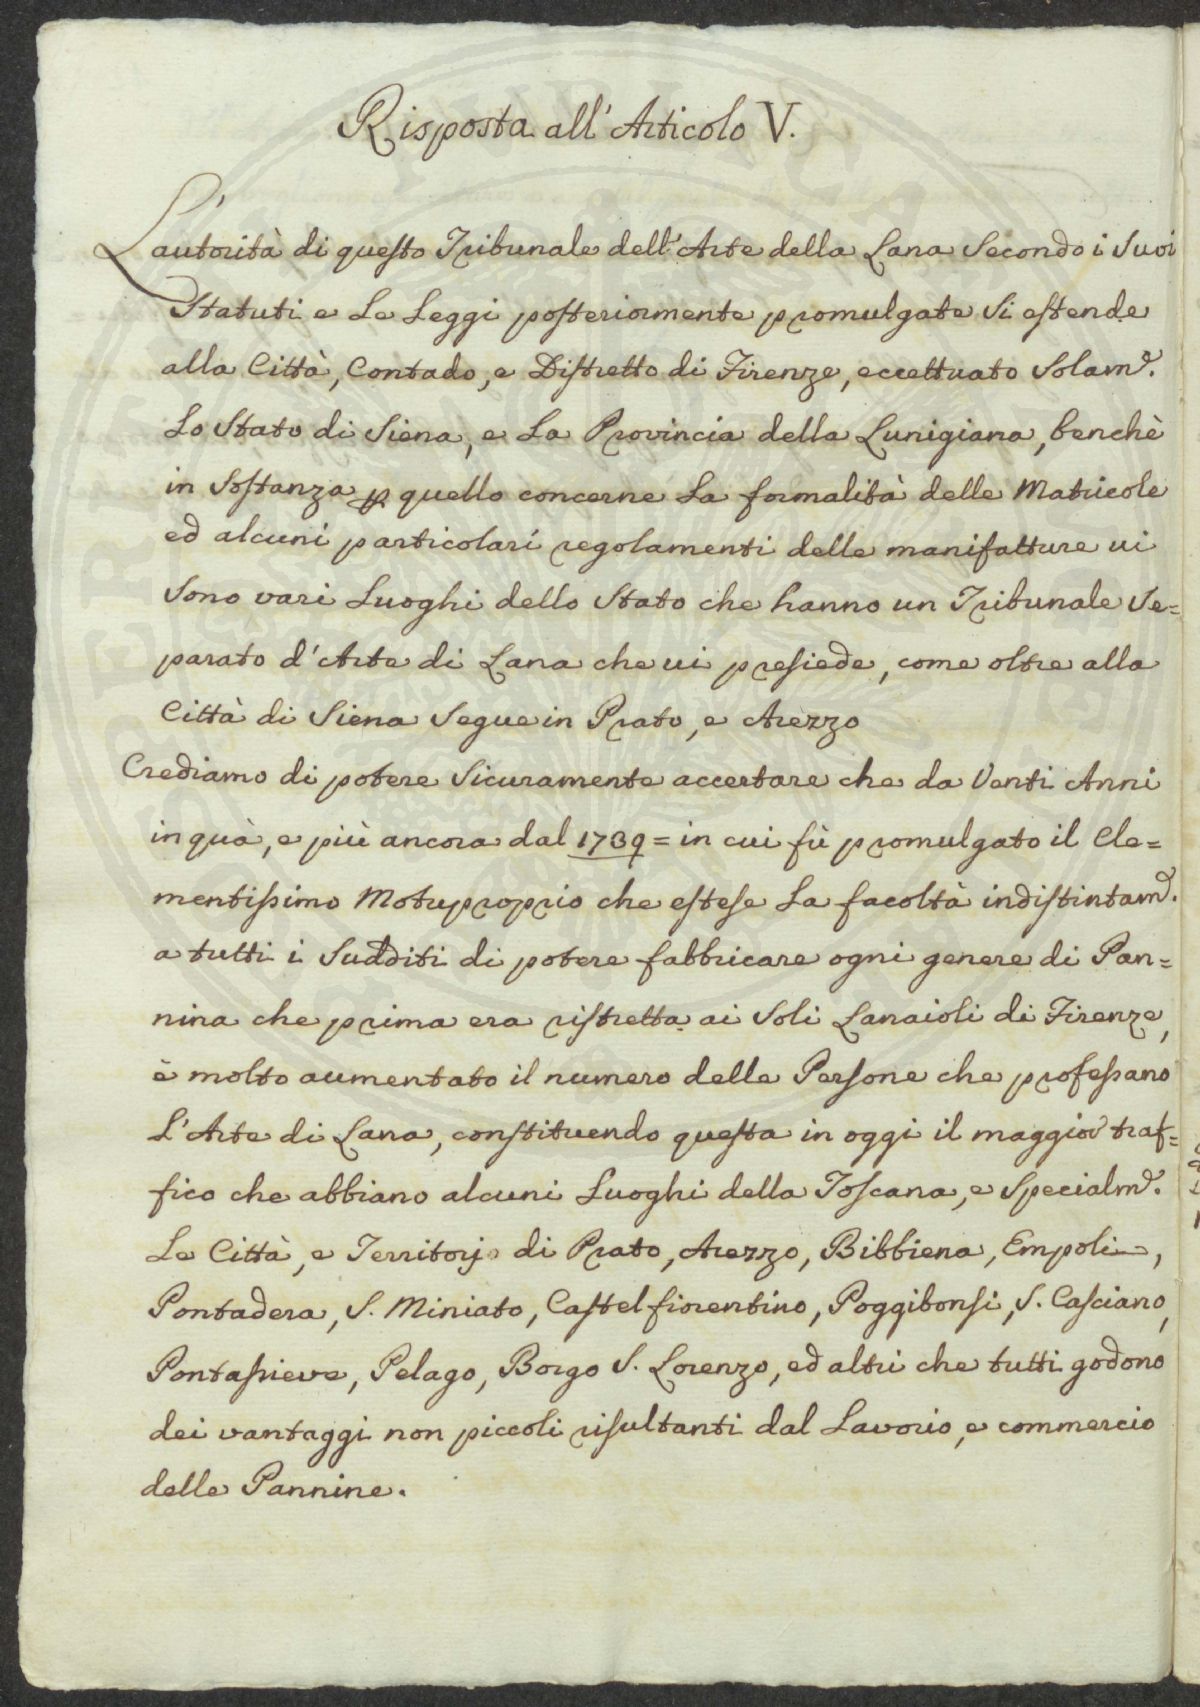 Risposta all'Articolo V.
L'autorità di questo Tribunale dell'Arte della Lana Secondo i Suoi
Statuti e Le Leggi posteriormente promulgate Si estende
alla Città, Contado, e Distretto di Firenze, eccettuato Solam.e
Lo Stato di Siena, e La Provincia della Lunigiana, benchè
in Sostanza p quello concerne La formalità delle Matricole
ed alcuni particolari regolamenti delle manifatture vi
Sono vari Luoghi dello Stato che hanno un Tribunale Se=
parato d'Arte di Lana che vi presiede, come oltre alla
Città di Siena Segue in Prato, e Arezzo
Crediamo di potere Sicuramente accertare che da Venti Anni
in quà, e più ancora dal 1739= in cui fù promulgato il Cle=
mentissimo Motuproprio che estese La facoltà indistintam.e
a tutti i Sudditi di potere fabbricare ogni genere di Pan=
nina che prima era ristretta ai Soli Lanaioli di Firenze,
è molto aumentato il numero delle Persone che professano
L'Arte di Lana, constituendo questa in oggi il maggior traf=
fico che abbiano alcuni Luoghi della Toscana, e Specialm.e
Le Città, e Territorj di Prato, Arezzo, Bibbiena, Empoli,
Pontadera, S. Miniato, Castelfiorentino, Poggibonsi, S. Casciano,
Pontassieve, Pelago, Borgo S. Lorenzo, ed altri che tutti godono
dei vantaggi non piccoli risultanti dal Lavorio, e commercio
delle Pannine.